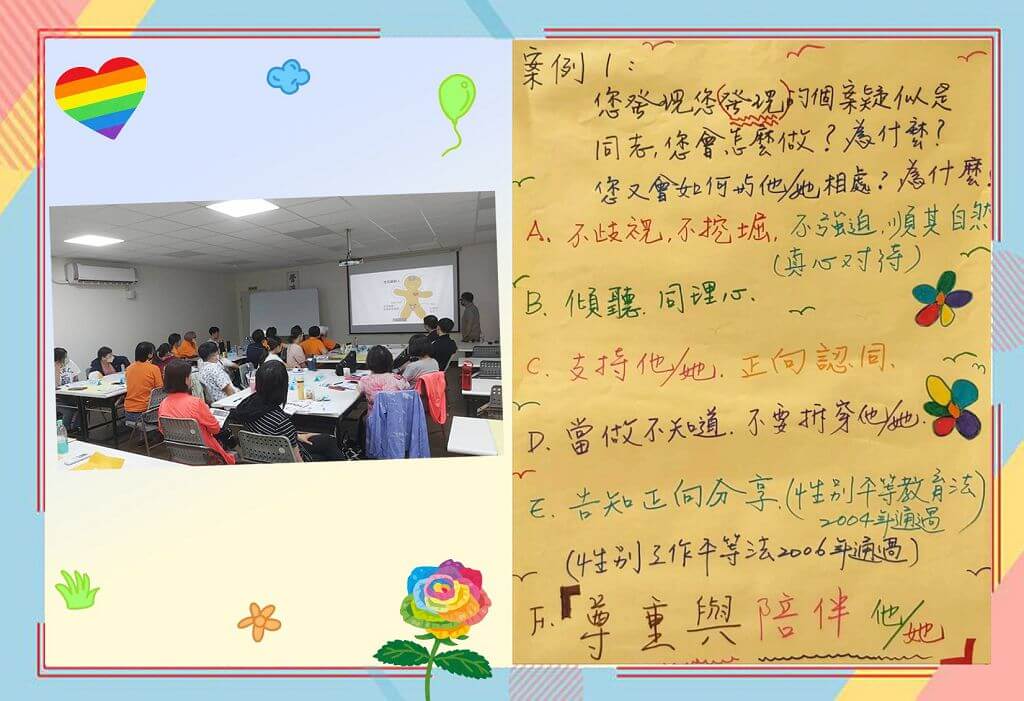 案例1:
您發現您發現的個案疑似是
同志,您會怎麼做?為什麼?
您又會如何与他/她相處?為什麼?
A. 不歧視,不挖堀,不強迫,順其自然
(真心对待)
B. 傾聽.同理心.
C. 支持他/她.正向認同.
D. 當做不知道.不要拆穿他/她.
E. 告知正向分享.(性別平等教育法)
2004年通過
(性別工作平等法2006年通過)
F.「尊重與陪伴他/她」